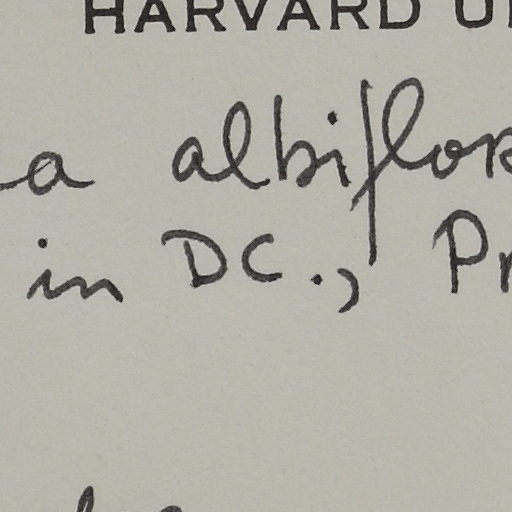 HARVARD U
a albiflor
in DC., Pr